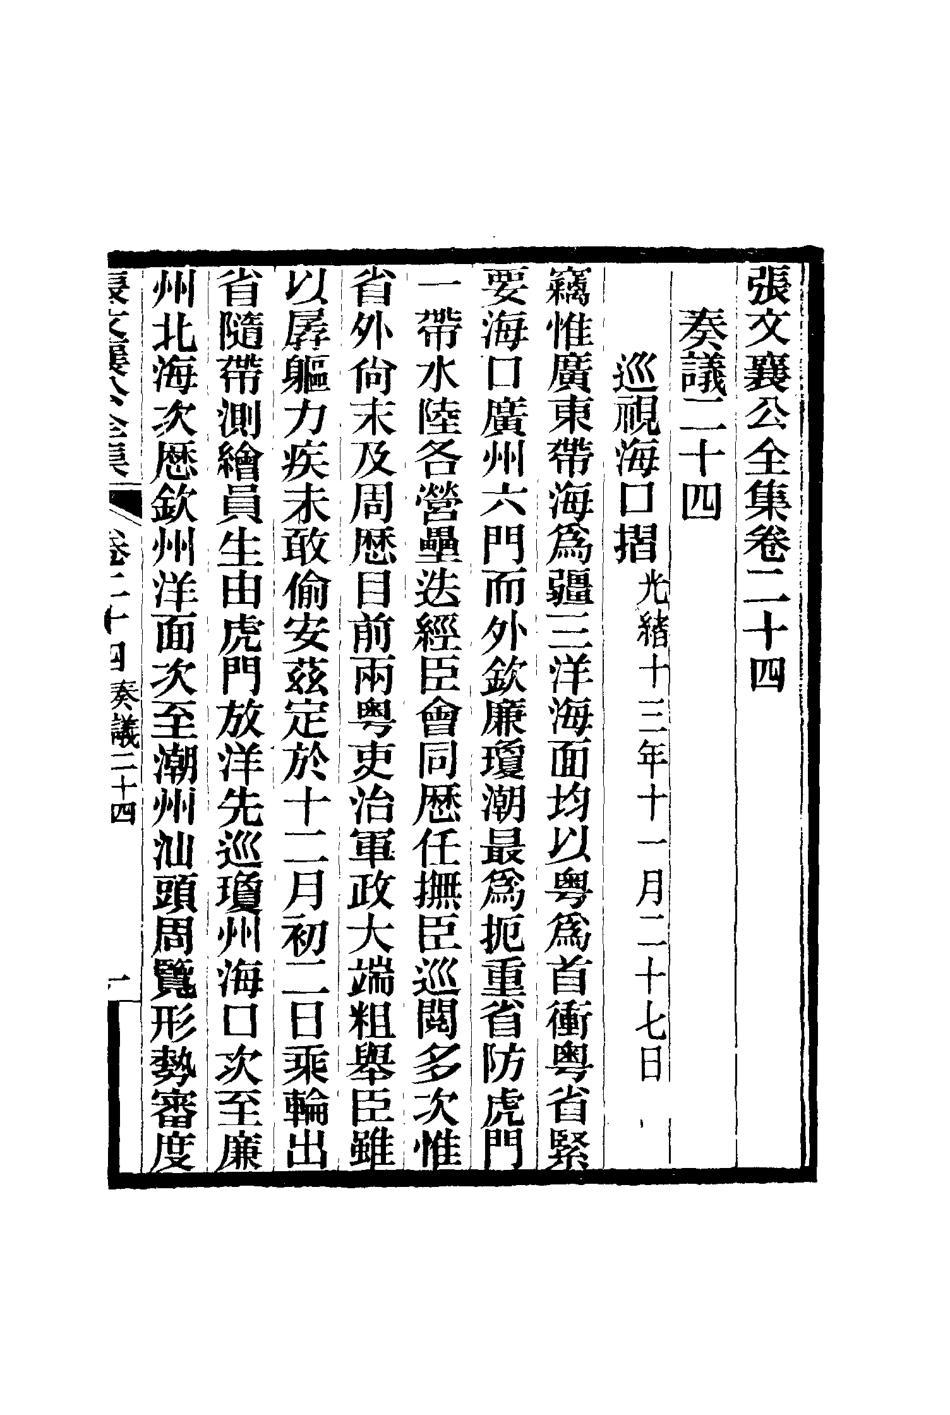 張文襄公全集卷二十四
奏議二十四
巡視海口摺光緒十三年十一月二十七日
竊惟廣東帶海爲疆三洋海面均以粤爲首衝粤省緊
要海口廣州六門而外欽廉瓊潮最爲扼重省防虎門
一帶水陸各營壘迭經臣會同歷任撫臣巡閱多次惟
省外尙未及周歷目前兩粤吏治軍政大端粗舉臣雖
以孱軀力疾未敢偷安茲定於十二月初二日乘輪出
省隨帶測繪員生由虎門放洋先巡瓊州海口次至廉
州北海次歷欽州洋面次至潮州汕頭周覽形勢審度
張文襄公全集 卷二十四 奏議二十四 一